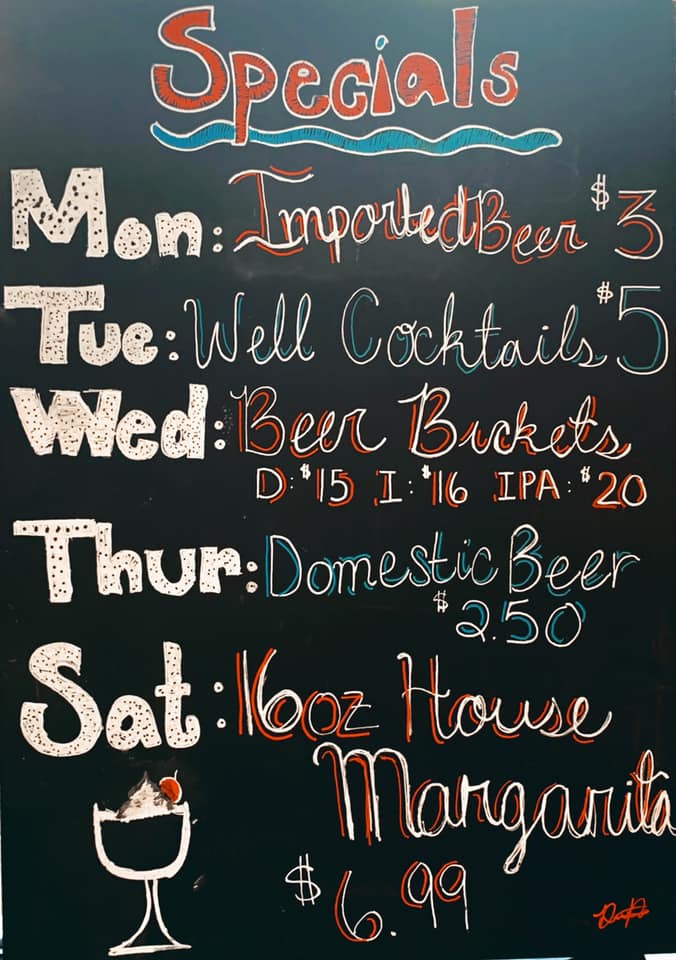 Specials
Mon: Imported Beer $3
Tue: Well Cocktails $5
Wed: Beer Buckets
D: $15 I: $16 IPA: $20
Thur: Domestic Beer
$2.50
Sat: 16oz House
Margarita
$6.99